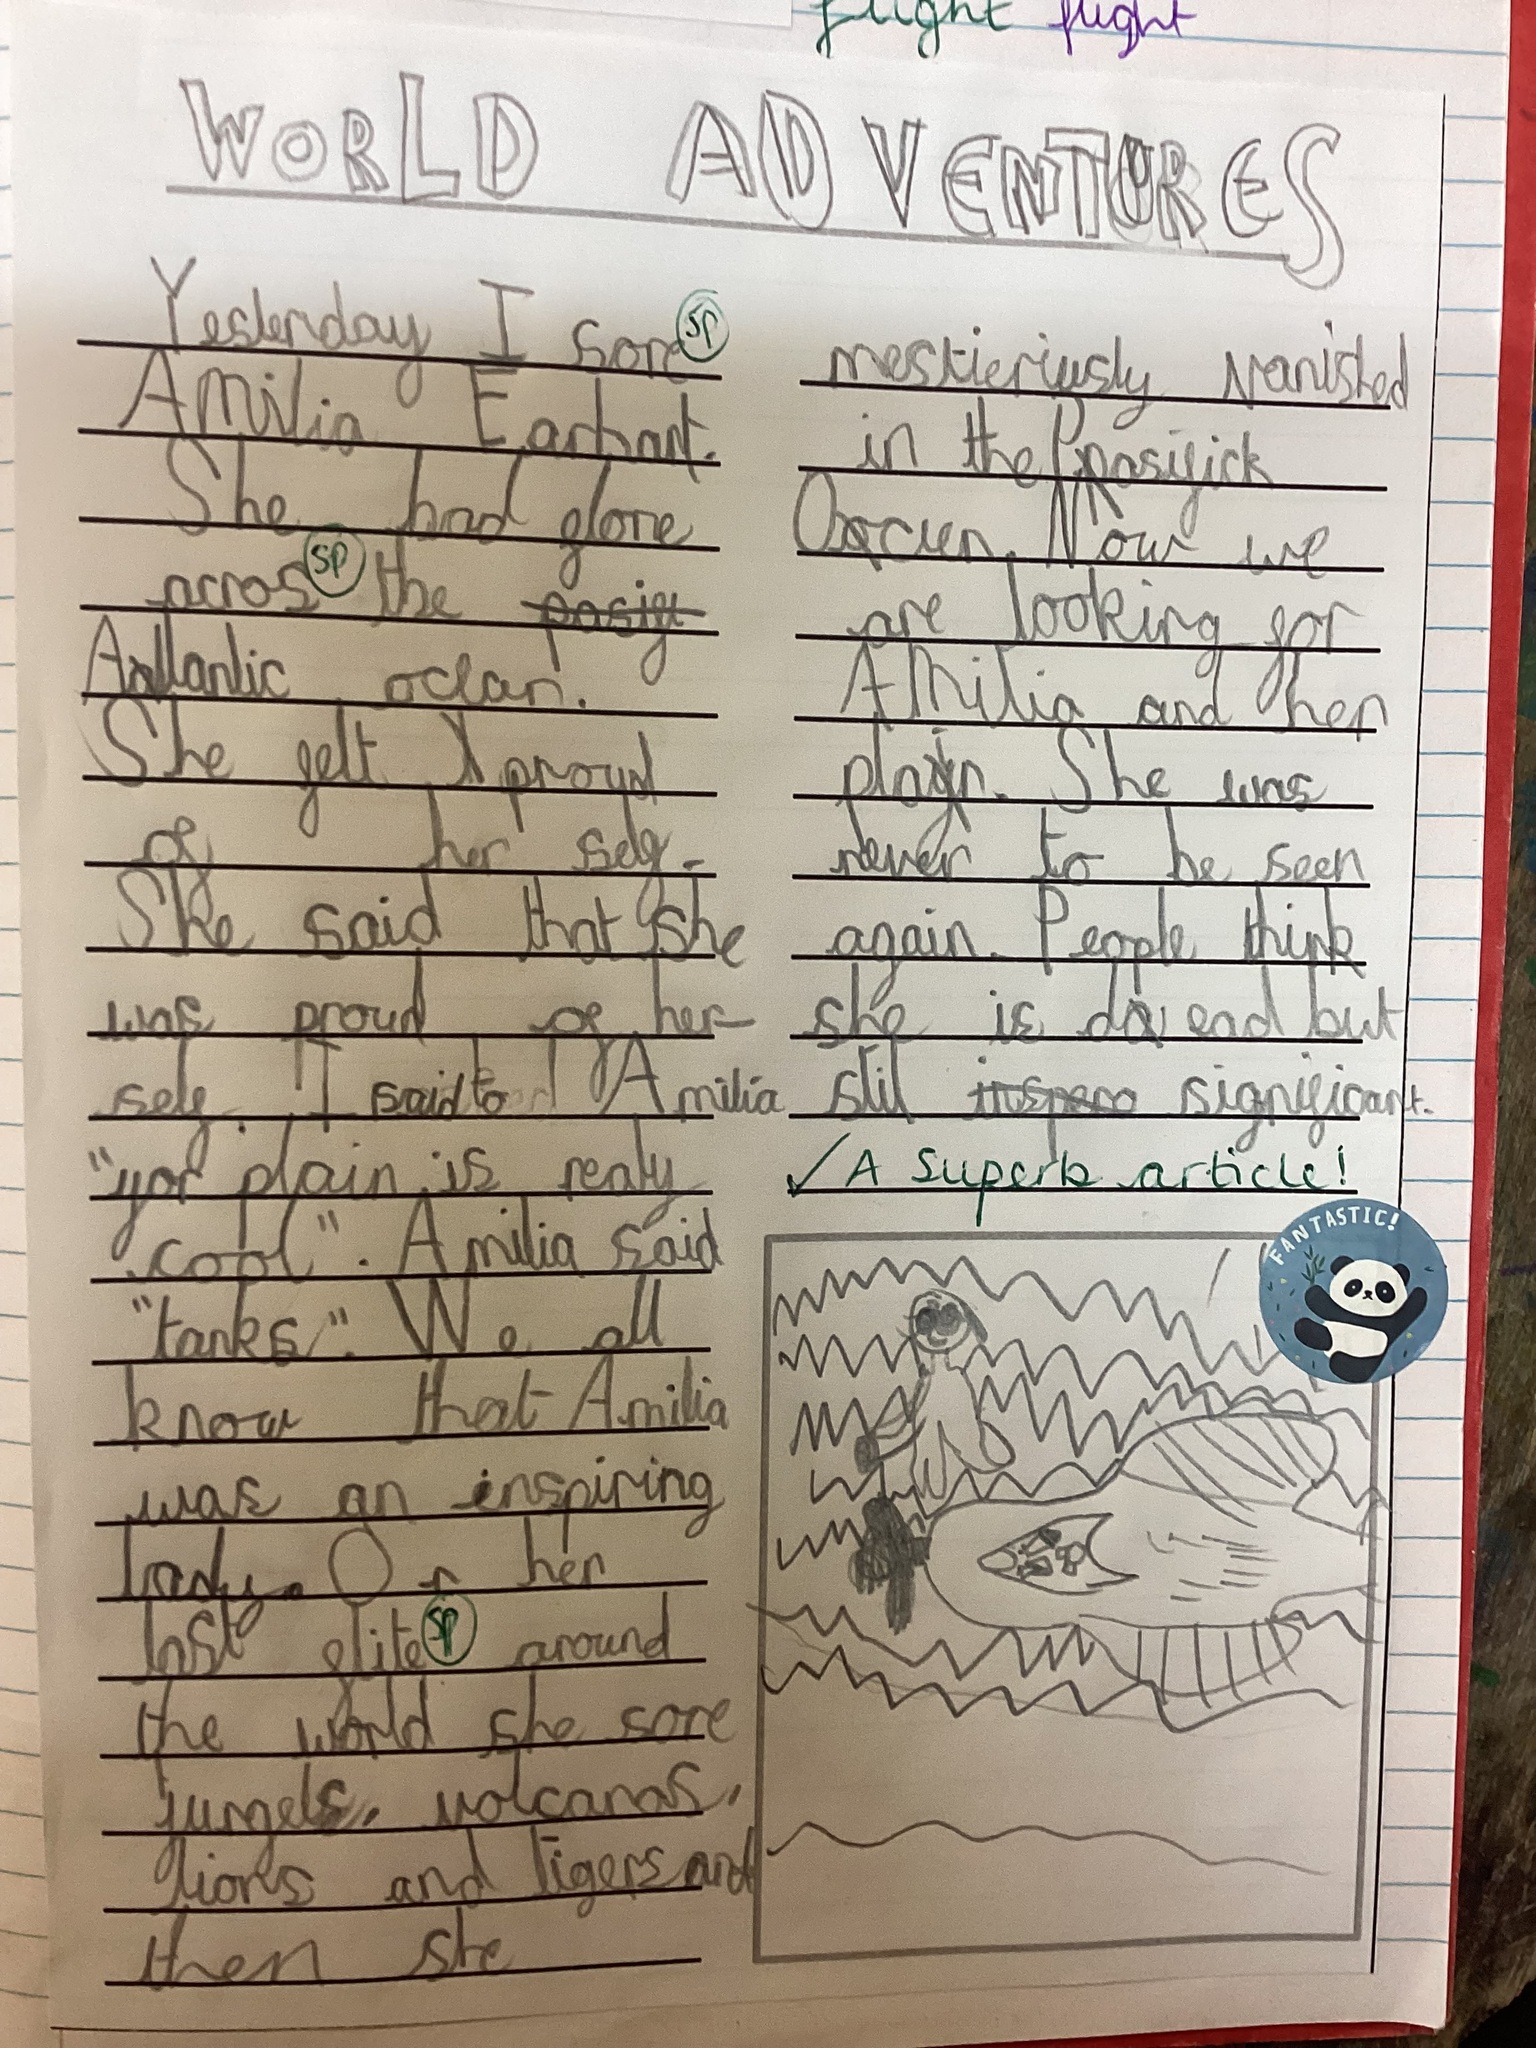 flight flight
WORLD ADVENTURES
Yesterday I sore sp
Amilia Earhart.
She had flone
acros sp the pasif
Atlantic ocean.
She felt proud
of her self.
She said that she
was proud of her
self. I said to Amilia
"yor plain is realy
cool". Amilia said
"tanks". We all
know that Amilia
was an inspiring
lady. On her
last flite sp around
the world she sore
jungels, volcanos,
lions and tigers and
then she
mestieriusly vanished
in the Pasifick
Oacuen. Now we
are looking for
Amilia and her
plain. She was
never to be seen
again. People think
she is dead but
stil inspero significant.
✓ A superb article!
FANTASTIC!